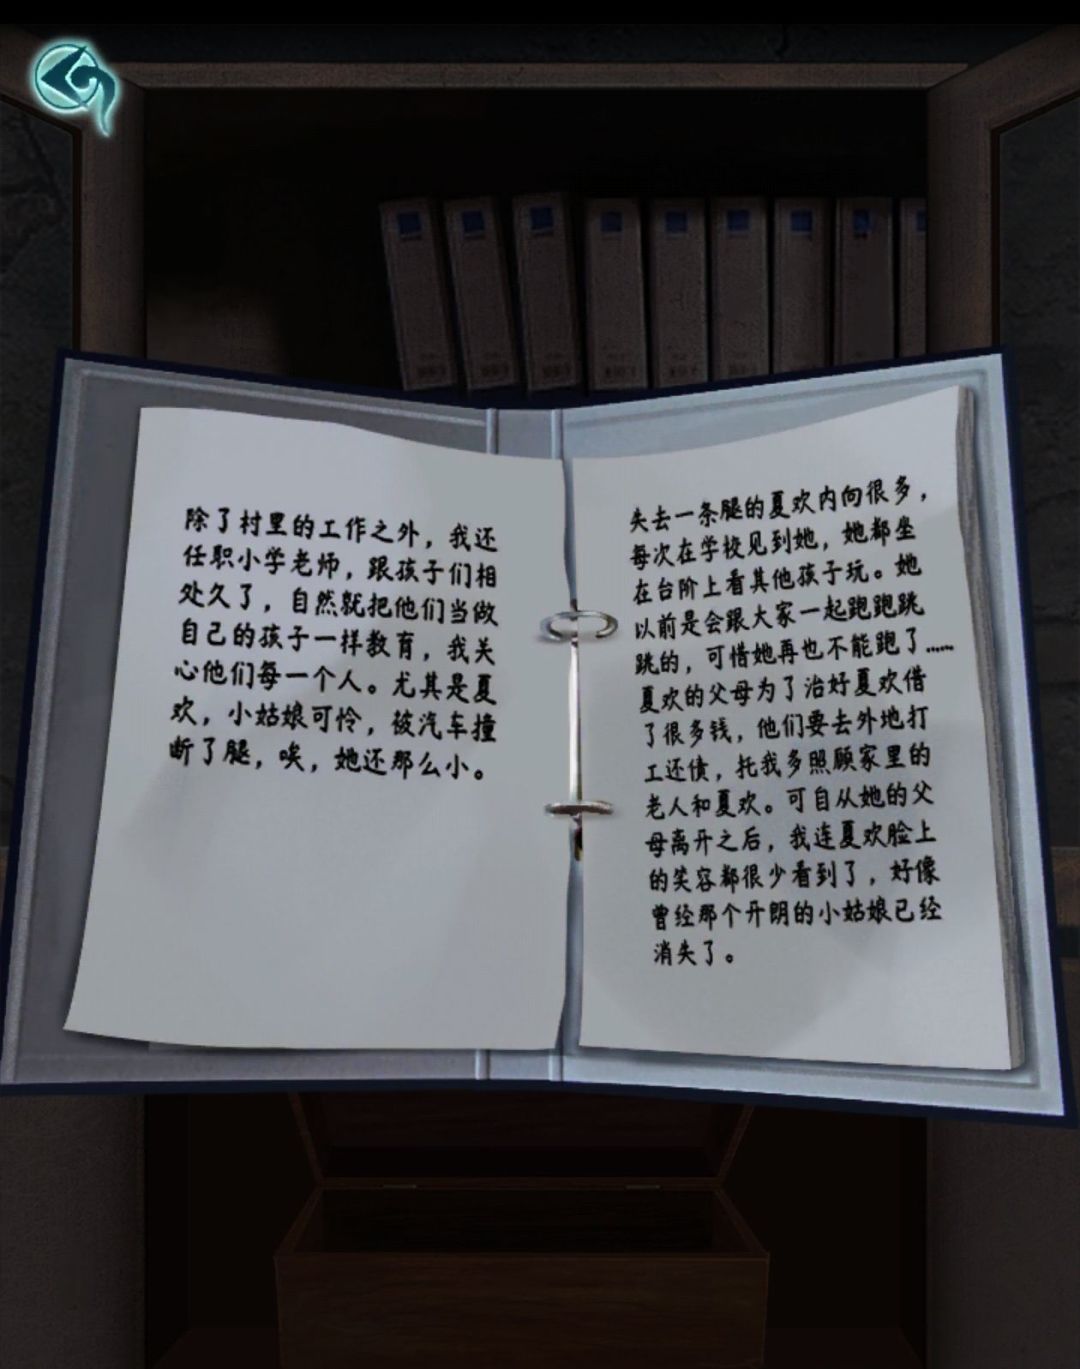 除了村里的工作之外，我还
任职小学老师，跟孩子们相
处久了，自然就把他们当做
自己的孩子一样教育，我关
心他们每一个人。尤其是夏
欢，小姑娘可怜，被汽车撞
断了腿，唉，她还那么小。
失去一条腿的夏欢内向很多，
每次在学校见到她，她都坐
在台阶上看其他孩子玩。她
以前是会跟大家一起跑跑跳
跳的，可惜她再也不能跑了……
夏欢的父母为了治好夏欢借
了很多钱，他们要去外地打
工还债，托我多照顾家里的
老人和夏欢。可自从她的父
母离开之后，我连夏欢脸上
的笑容都很少看到了，好像
曾经那个开朗的小姑娘已经
消失了。